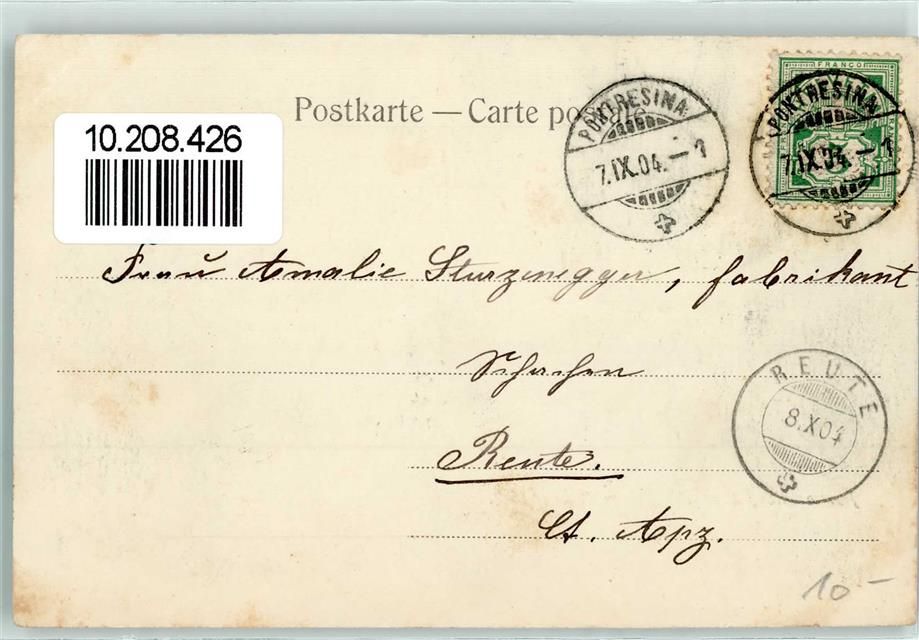 Postkarte — Carte postale
10.208.426
FRANCO
PONTRESINA
7.IX.04.–1
PONTRESINA
7.IX.04.–1
Frau Amalie Sturzenegger, fabrikant
Schachen
REUTE
8.X04
Reute.
Ct. Apz.
10–